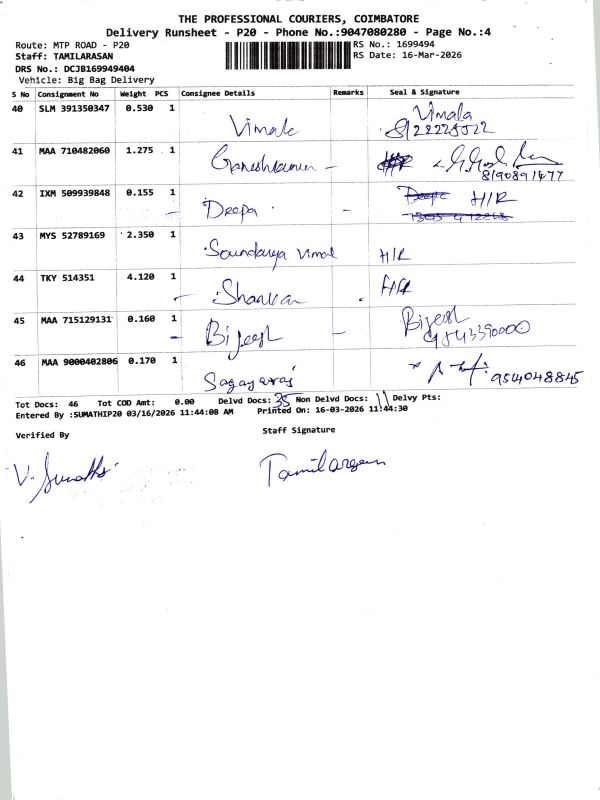 THE PROFESSIONAL COURIERS, COIMBATORE
Delivery Runsheet - P20 - Phone No.:9047080280 - Page No.:4
Route: MTP ROAD - P20 RS No.: 1699494
Staff: TAMILARASAN RS Date: 16-Mar-2026
DRS No.: DCJB169949404
Vehicle: Big Bag Delivery
S No Consignment No Weight PCS Consignee Details Remarks Seal & Signature
40 SLM 391350347 0.530 1 Vimala Vimala
41 MAA 710482060 1.275 1 Ganeshkumar - 8190891477
42 IXM 509939848 0.155 1 Deepa - H/R
43 MYS 52789169 2.350 1 Soundarya Vimal H/R
44 TKY 514351 4.120 1 Shankar
45 MAA 715129131 0.160 1 Bijeesh - Bijeesh
9843390000
46 MAA 9000402806 0.170 1 Sagayaraj 9514048845
Tot Docs: 46 Tot COD Amt: 0.00 Delvd Docs: 35 Non Delvd Docs: 11 Delvy Pts:
Entered By :SUMATHIP20 03/16/2026 11:44:08 AM Printed On: 16-03-2026 11:44:30
Verified By Staff Signature
V. Sumathi Tamilarasan